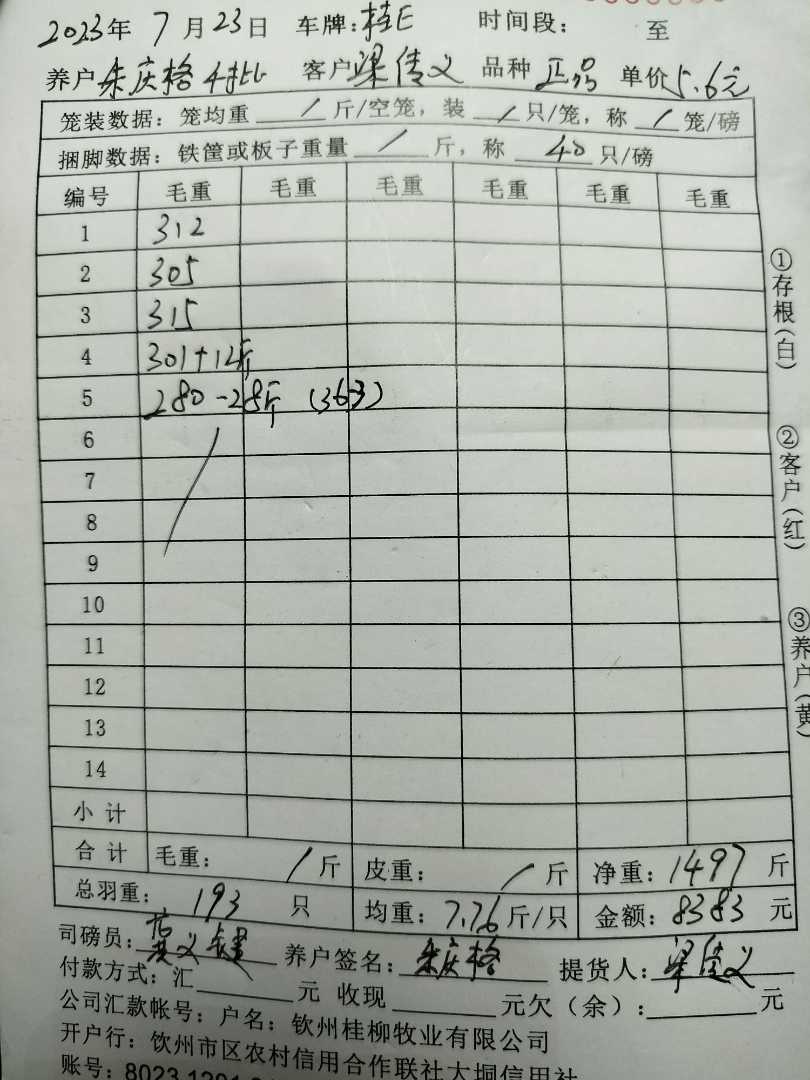 2023年 7 月 23日 车牌:桂E 时间段: 至
养户 朱庆格 4批 客户 梁倩义 品种 正品 单价 5.6元
笼装数据:笼均重 / 斤/空笼,装 / 只/笼,称 / 笼/磅
捆脚数据:铁筐或板子重量 / 斤,称 40 只/磅
编号 毛重 毛重 毛重 毛重 毛重 毛重
1 312
2 305
3 315
4 301+12斤
5 280-28斤 (363)
6
7
8
9
10
11
12
13
14
小 计
合 计 毛重: / 斤 皮重: / 斤 净重:1497 斤
总羽重: 193 只 均重:7.76 斤/只 金额:8383 元
司磅员: 黄义健 养户签名: 朱庆格 提货人: 梁倩义
付款方式:汇 元 收现 元欠(余): 元
公司汇款帐号:户名:钦州桂柳牧业有限公司
开户行:钦州市区农村信用合作联社大垌信用社
账号:8023 1201
①存根(白)
②客户(红)
③养户(黄)